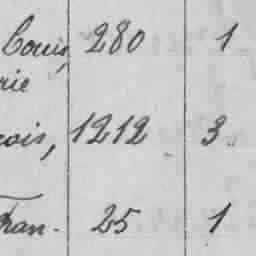 Louis, 280 1
rie
rois, 1212 3
Fran- 25 1